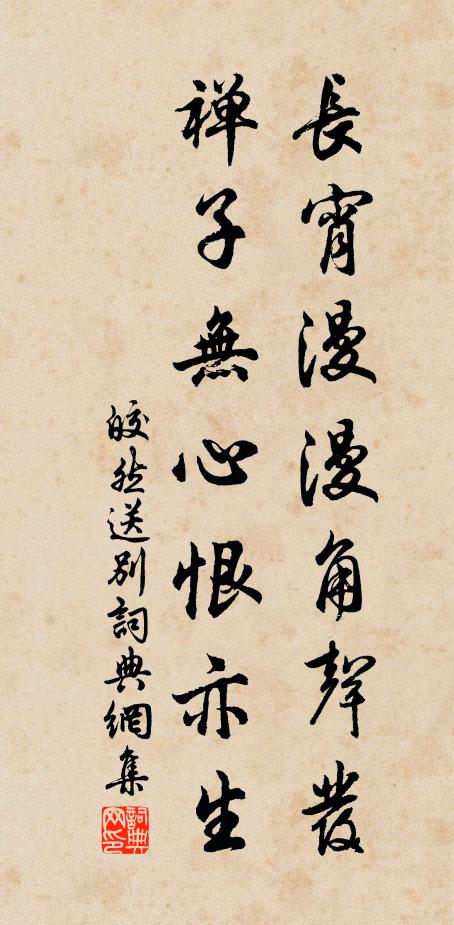 長宵漫漫角聲發
禪子無心恨亦生
皎然送別詞典網集
詞典網印